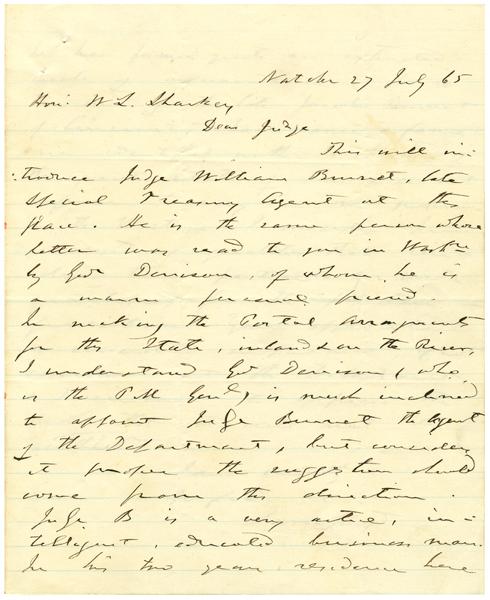 Natchez 27 July 65
Hon: W L. Sharkey
Dear Judge
This will in:
troduce Judge William Burnet, late
Special Treasury Agent at this
place. He is the same person whose
letter was read to you in Wash:n
by Gov Dennison, of whom he is
a warm personal friend.
In making the Postal arrangements
for this State, inland & on the River,
I understand Gov Dennison, (who
is the P M Genl,) is much inclined
to appoint Judge Burnet the Agent
of the Department, but considers
it proper the suggestion should
come from this direction.
Judge B is a very active, in:
telligent, educated business man.
In his two years residence here